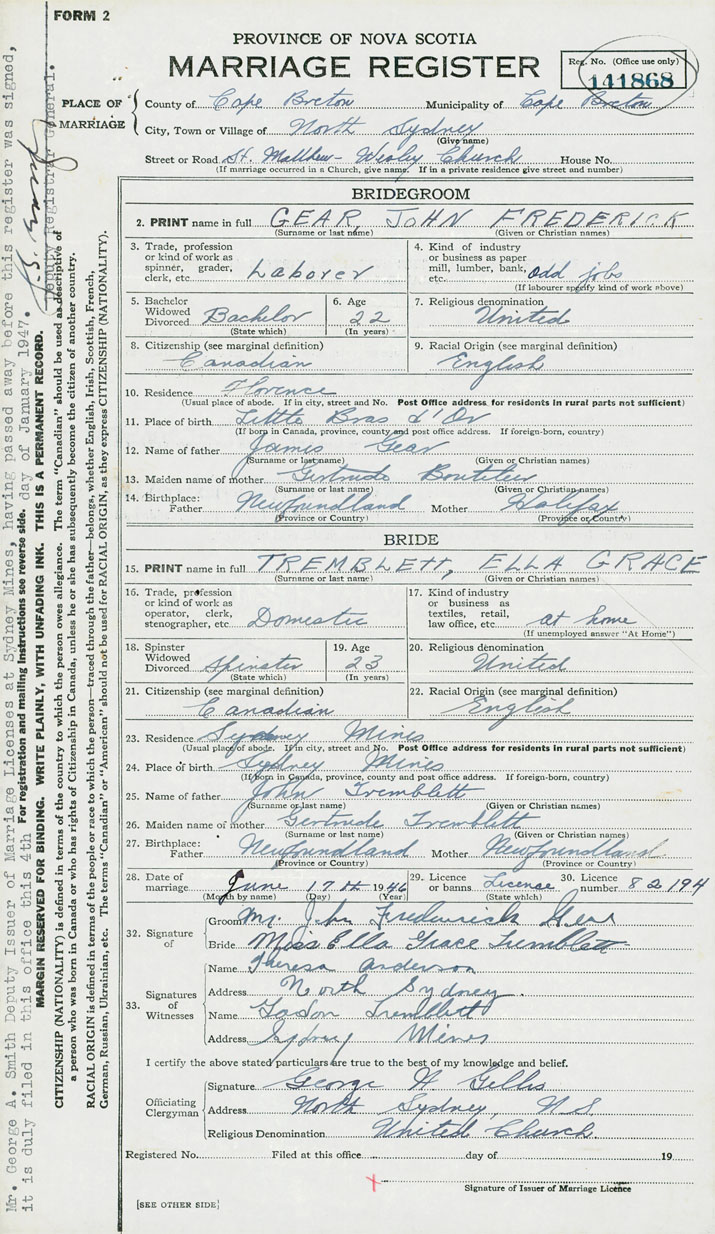 FORM 2
PROVINCE OF NOVA SCOTIA
MARRIAGE REGISTER
Reg. No. (Office use only)
141868
PLACE OF MARRIAGE
County of Cape Breton Municipality of Cape Breton
City, Town or Village of North Sydney
(Give name)
Street or Road St. Matthew-Wesley Church House No.
(If marriage occurred in a Church, give name. If in a private residence give street and number)
BRIDEGROOM
2. PRINT name in full GEAR, JOHN FREDERICK
(Surname or last name) (Given or Christian names)
3. Trade, profession or kind of work as spinner, grader, clerk, etc. Laborer
4. Kind of industry or business as paper mill, lumber, bank, etc. odd jobs
(If labourer specify kind of work above)
5. Bachelor Widowed Divorced Bachelor
(State which)
6. Age 22
(In years)
7. Religious denomination
United
8. Citizenship (see marginal definition)
Canadian
9. Racial Origin (see marginal definition)
English
10. Residence Florence
(Usual place of abode. If in city, street and No. Post Office address for residents in rural parts not sufficient)
11. Place of birth Little Bras d'Or
(If born in Canada, province, county and post office address. If foreign-born, country)
12. Name of father James Gear
(Surname or last name) (Given or Christian names)
13. Maiden name of mother Gertrude Boutilier
(Surname or last name) (Given or Christian names)
14. Birthplace: Father Newfoundland Mother Halifax
(Province or Country) (Province or Country)
BRIDE
15. PRINT name in full TREMBLETT, ELLA GRACE
(Surname or last name) (Given or Christian names)
16. Trade, profession or kind of work as operator, clerk, stenographer, etc. Domestic
17. Kind of industry or business as textiles, retail, law office, etc. at home
(If unemployed answer "At Home")
18. Spinster Widowed Divorced Spinster
(State which)
19. Age 23
(In years)
20. Religious denomination
United
21. Citizenship (see marginal definition)
Canadian
22. Racial Origin (see marginal definition)
English
23. Residence Sydney Mines
(Usual place of abode. If in city, street and No. Post Office address for residents in rural parts not sufficient)
24. Place of birth Sydney Mines
(If born in Canada, province, county and post office address. If foreign-born, country)
25. Name of father John Tremblett
(Surname or last name) (Given or Christian names)
26. Maiden name of mother Gertrude Tremblett
(Surname or last name) (Given or Christian names)
27. Birthplace: Father Newfoundland Mother Newfoundland
(Province or Country) (Province or Country)
28. Date of marriage June 17th 1946
(Month by name) (Day) (Year)
29. Licence or banns License
(State which)
30. Licence number 82194
32. Signature of
Groom Mr. John Frederick Gear
Bride Miss Ella Grace Tremblett
33. Signatures of Witnesses
Name Theresa Anderson
Address North Sydney.
Name Tremblett
Address Sydney Mines
I certify the above stated particulars are true to the best of my knowledge and belief.
Officiating Clergyman
Signature George A Gillis
Address North Sydney, N.S.
Religious Denomination United Church
Registered No. Filed at this office day of 19
Signature of Issuer of Marriage Licence
[SEE OTHER SIDE]
Mr. George A. Smith Deputy Issuer of Marriage Licenses at Sydney Mines, having passed away before this register was signed,
it is duly filed in this office this 4th day of January 1947.
Deputy Registrar General.
For registration and mailing instructions see reverse side.
MARGIN RESERVED FOR BINDING. WRITE PLAINLY, WITH UNFADING INK. THIS IS A PERMANENT RECORD.
CITIZENSHIP (NATIONALITY) is defined in terms of the country to which the person owes allegiance. The term "Canadian" should be used as descriptive of
a person who was born in Canada or who has rights of Citizenship in Canada, unless he or she has subsequently become the citizen of another country.
RACIAL ORIGIN is defined in terms of the people or race to which the person—traced through the father—belongs, whether English, Irish, Scottish, French,
German, Russian, Ukrainian, etc. The terms "Canadian" or "American" should not be used for RACIAL ORIGIN, as they express CITIZENSHIP (NATIONALITY).